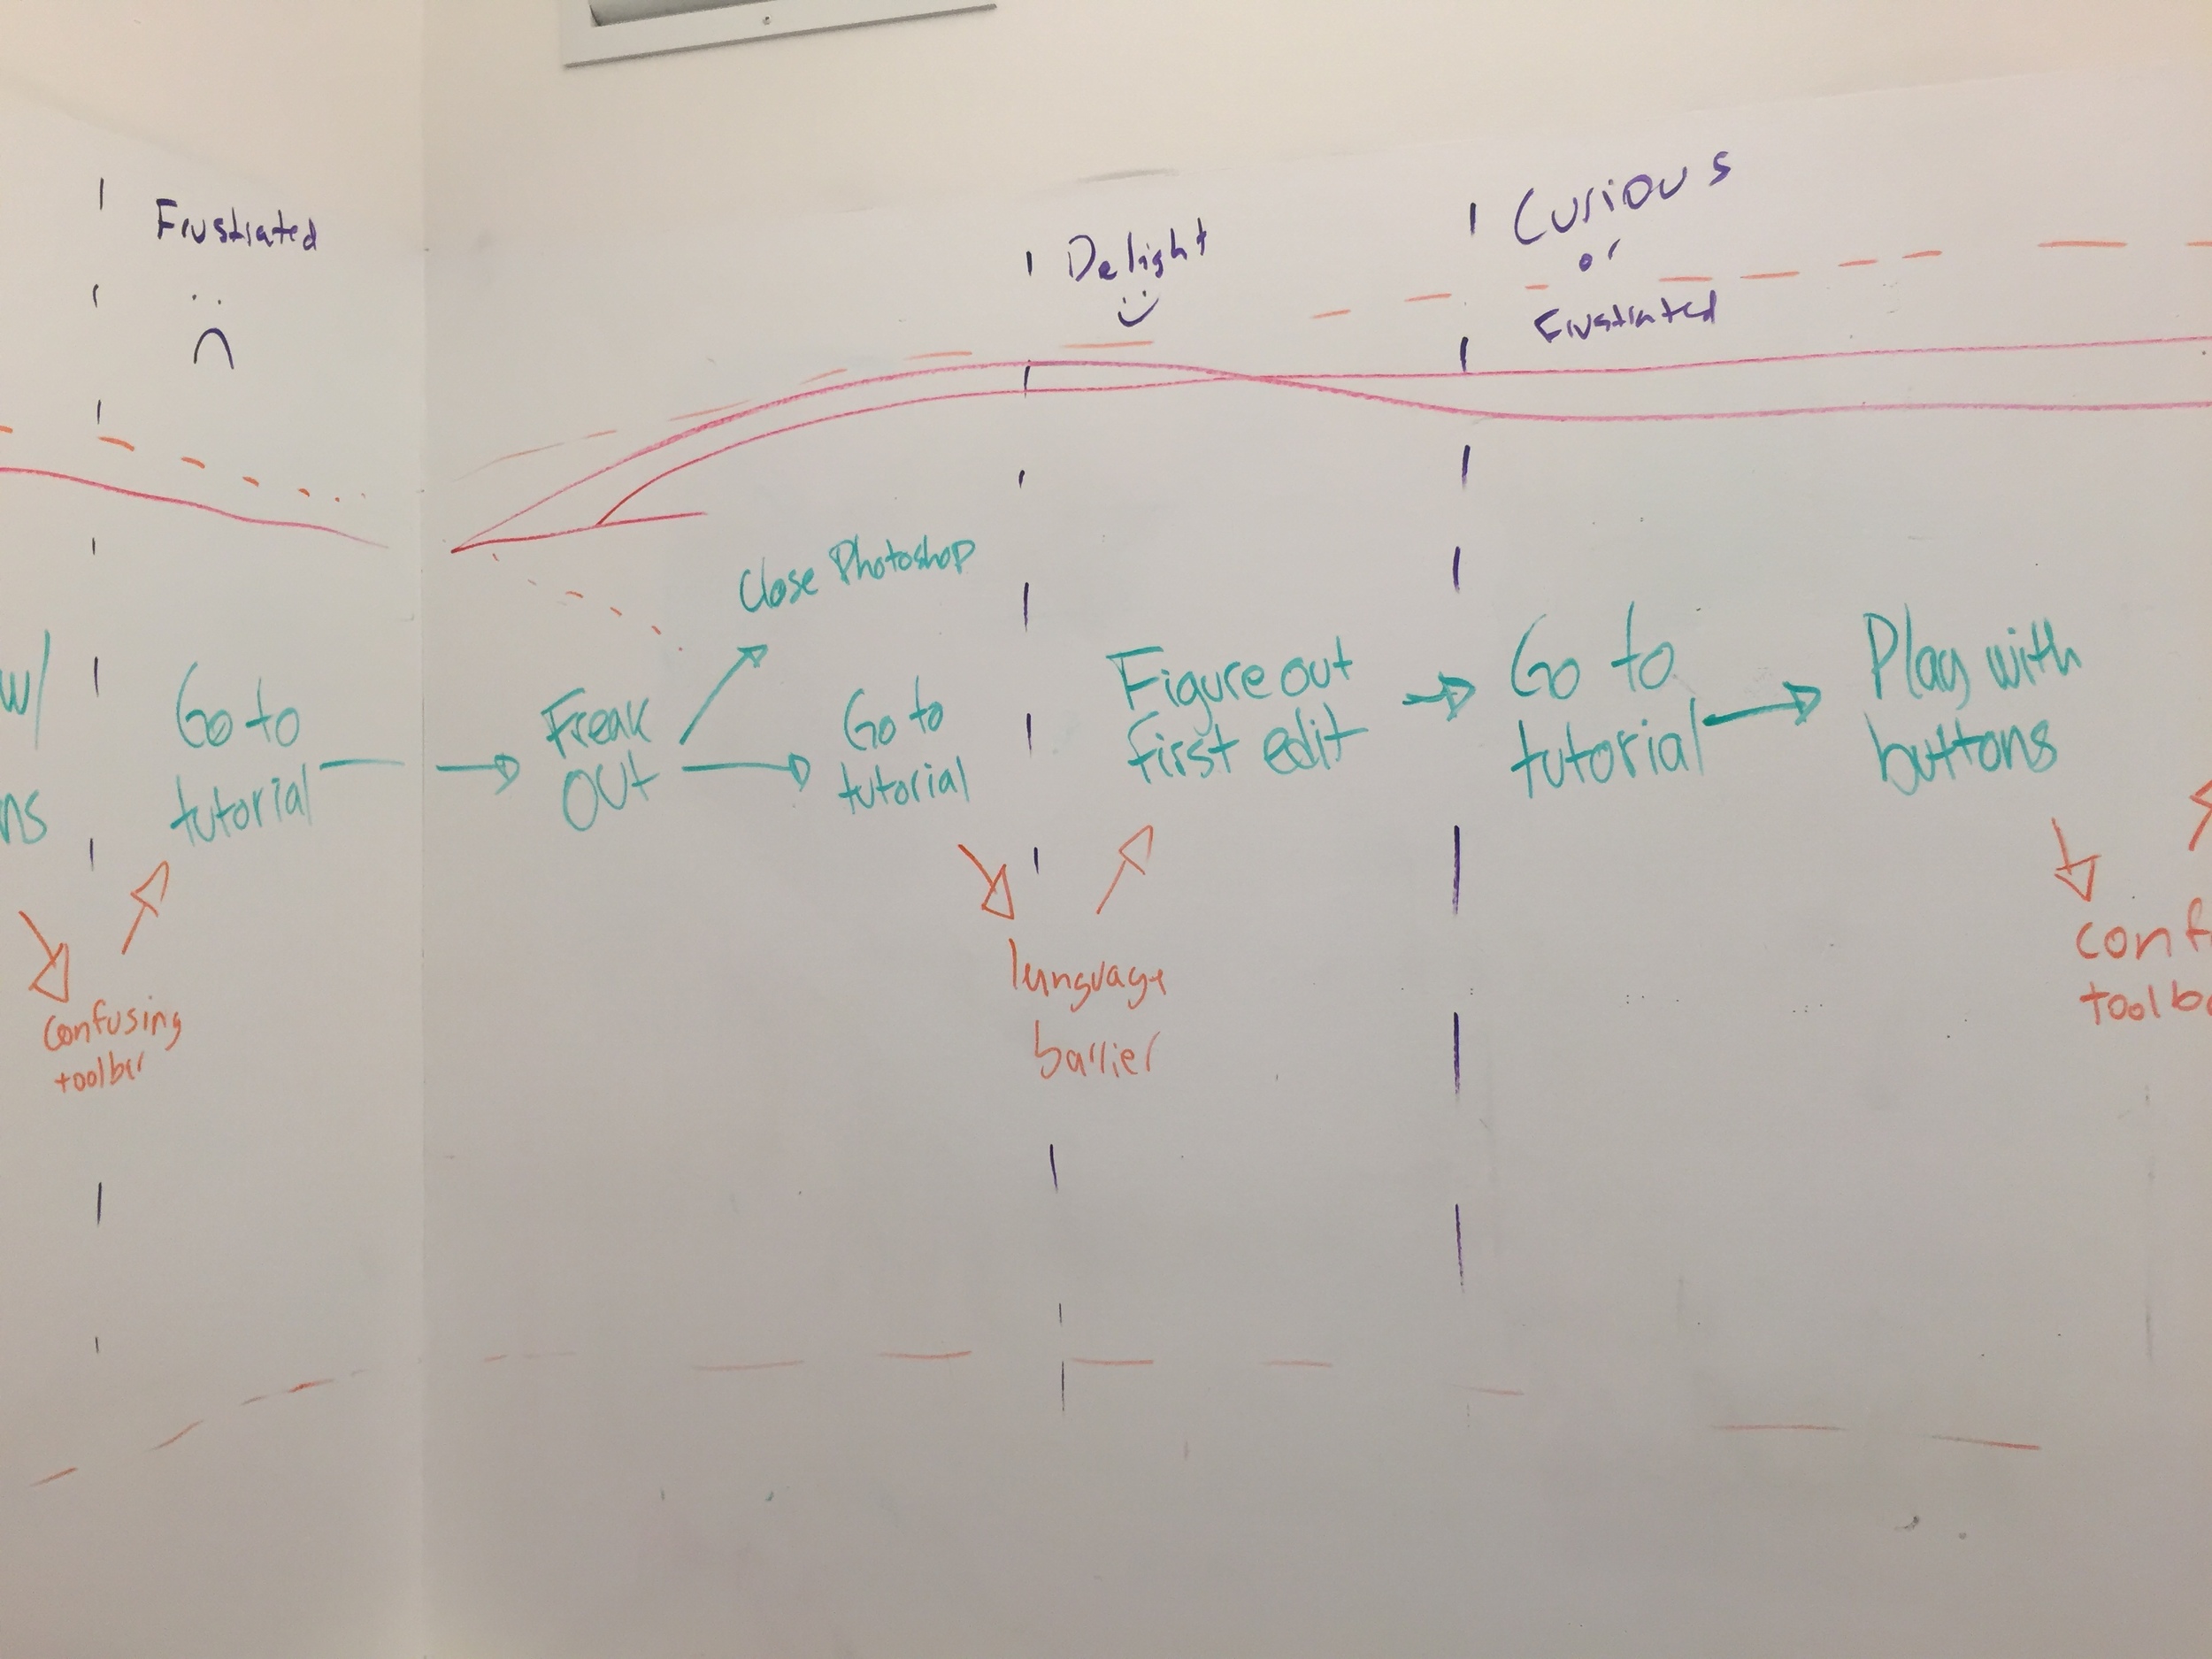 Frustrated
Delight
Curious
or
Frustrated
Close Photoshop
w/
ns
Go to
tutorial
Freak
OUT
Go to
tutorial
Figure out
first edit
Go to
tutorial
Play with
buttons
Confusing
toolbar
language
barrier
conf
toolba